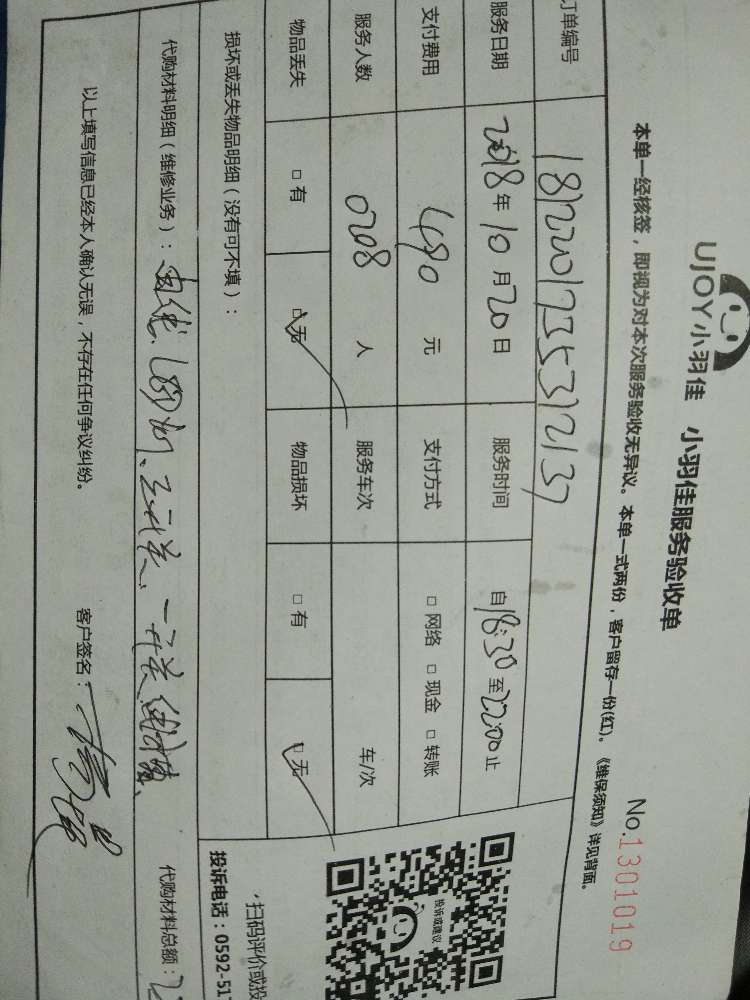 UJOY小羽佳 小羽佳服务验收单
No.1301019
本单一经核签，即视为对本次服务验收无异议。本单一式两份，客户留存一份(红)。《维保须知》详见背面。
订单编号 18122017235312137
服务日期 2018年10月20日 服务时间 自18:30至22:00止
支付费用 480 元 支付方式 □网络 □现金 □转账
服务人数 0208 人 服务车次 车/次
物品丢失 □有 □无 物品损坏 □有 □无
损坏或丢失物品明细（没有可不填）：
代购材料明细（维修业务）：电线、LED灯、三开关、一开关 代购材料总额：
以上填写信息已经本人确认无误，不存在任何争议纠纷。 客户签名：
投诉或建议
扫码评价或投
投诉电话：0592-517